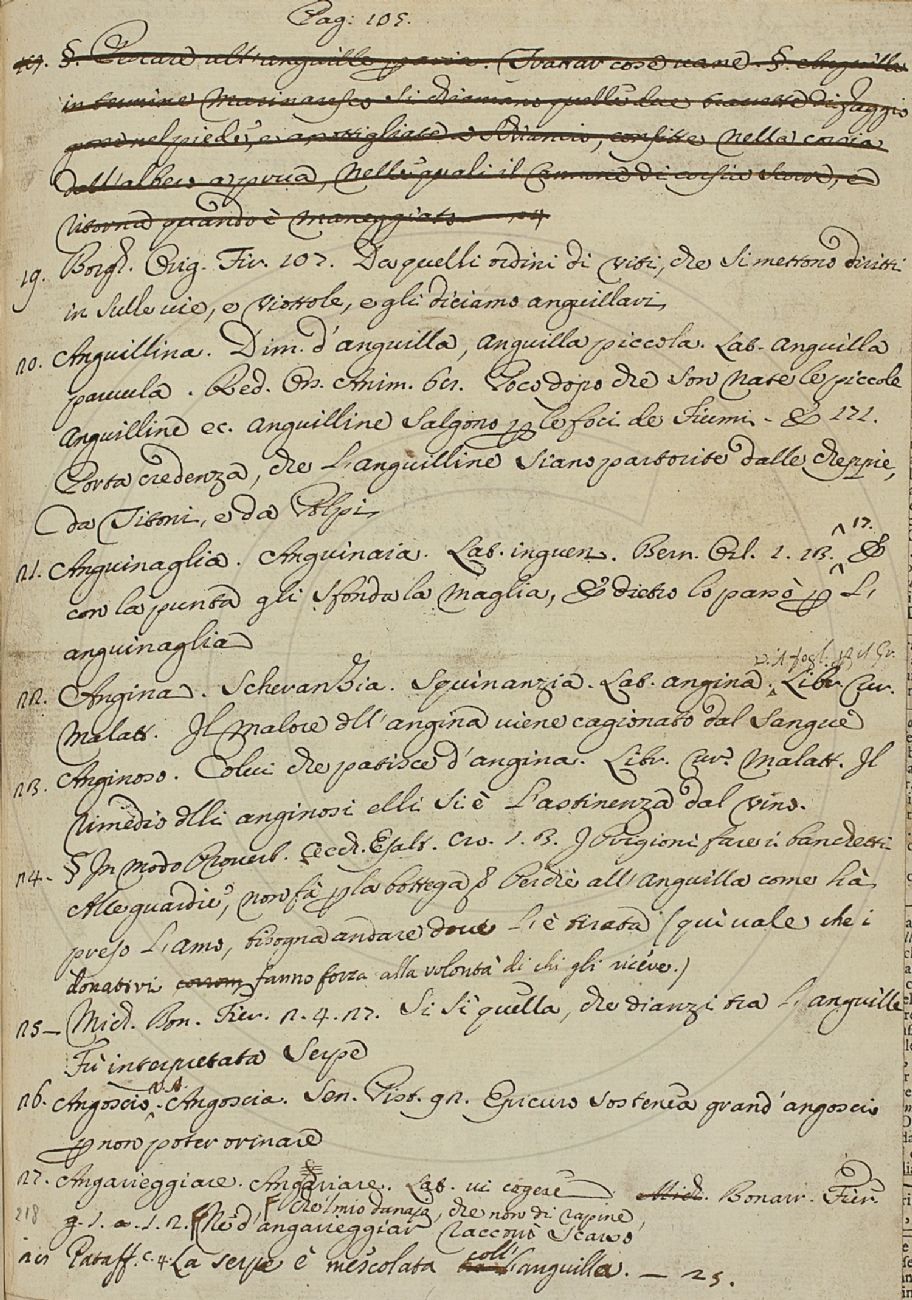 Pag: 105.
§. Pescare all'anguille
in termine Marinaresco si chiamano quelle due travette di faggio
poste nel piede, e confitte nella corsia
dall'albero a prua, nelle quali il Cannone di corsia scorre, e
ritorna quando è maneggiato
19. Borgh. Orig. Fir. 107. Da quelli ordini di viti, che si mettono diritti
in sulle vie, e viottole, e gli diciamo anguillari
20. Anguillina. Dim. d'anguilla, anguilla piccola. Lat. anguilla
parvula. Red. Oss. Anim. Poco dopo che son nate le piccole
anguilline ec. anguilline salgono p le foci de Fiumi - E 171.
Porta credenza, che l'anguilline siano partorite dalle cheppie,
da Titoni, e da Polpi
21. Anguinaglia. Anguinaia. Lat. inguen. Bern. Orl. 1. 17. E
con la punta gli sfonda la maglia, E dietro lo passò p L'
anguinaglia
22. Angina. Scheranzia. Squinanzia. Lat. angina. Libr. Cur.
Malatt. Il malore dll'angina viene cagionato dal sangue
23. Anginoso. Colui che patisce d'angina. Libr. Cur. Malatt. Il
rimedio dlli anginosi elli si è l'astinenza dal vino.
24. § In modo Proverb. Cecch. Esalt. Cr. 1. 3. I Prigioni fare i banchetti
Alle guardie, non fà p la bottega Perchè all'anguilla come hà
preso l'amo, bisogna andare dove l'è tirata (qui vale che i
donativi fanno forza alla volontà di chi gli riceve.)
25 - Mich. Bon. Fier. 2. 4. 27. Si si quella, che dianzi tra l'anguille
Fù interpretata Serpe
26. Angoscio. V.A. Angoscia. Sen. Pist. 92. Epicuro sostenea grand'angoscio
p non poter orinare
27. Angareggiare. Angariare. Lat. vi cogere Mich. Bonarr. Fier.
g. 1. a. 1. 2. Che'l mio danaio, che non di rapine,
218 Nè d'angareggiar raccorsò scarso
Pataff. c. 4. La serpe è mescolata coll' anguilla. — 25.